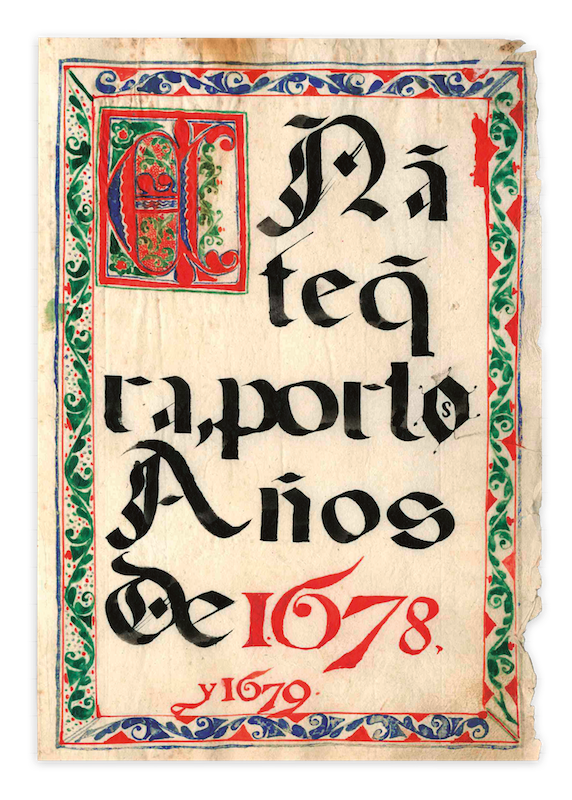 EÑ ã
teq̃
ra, por los
Años
de 1678,
y 1679.